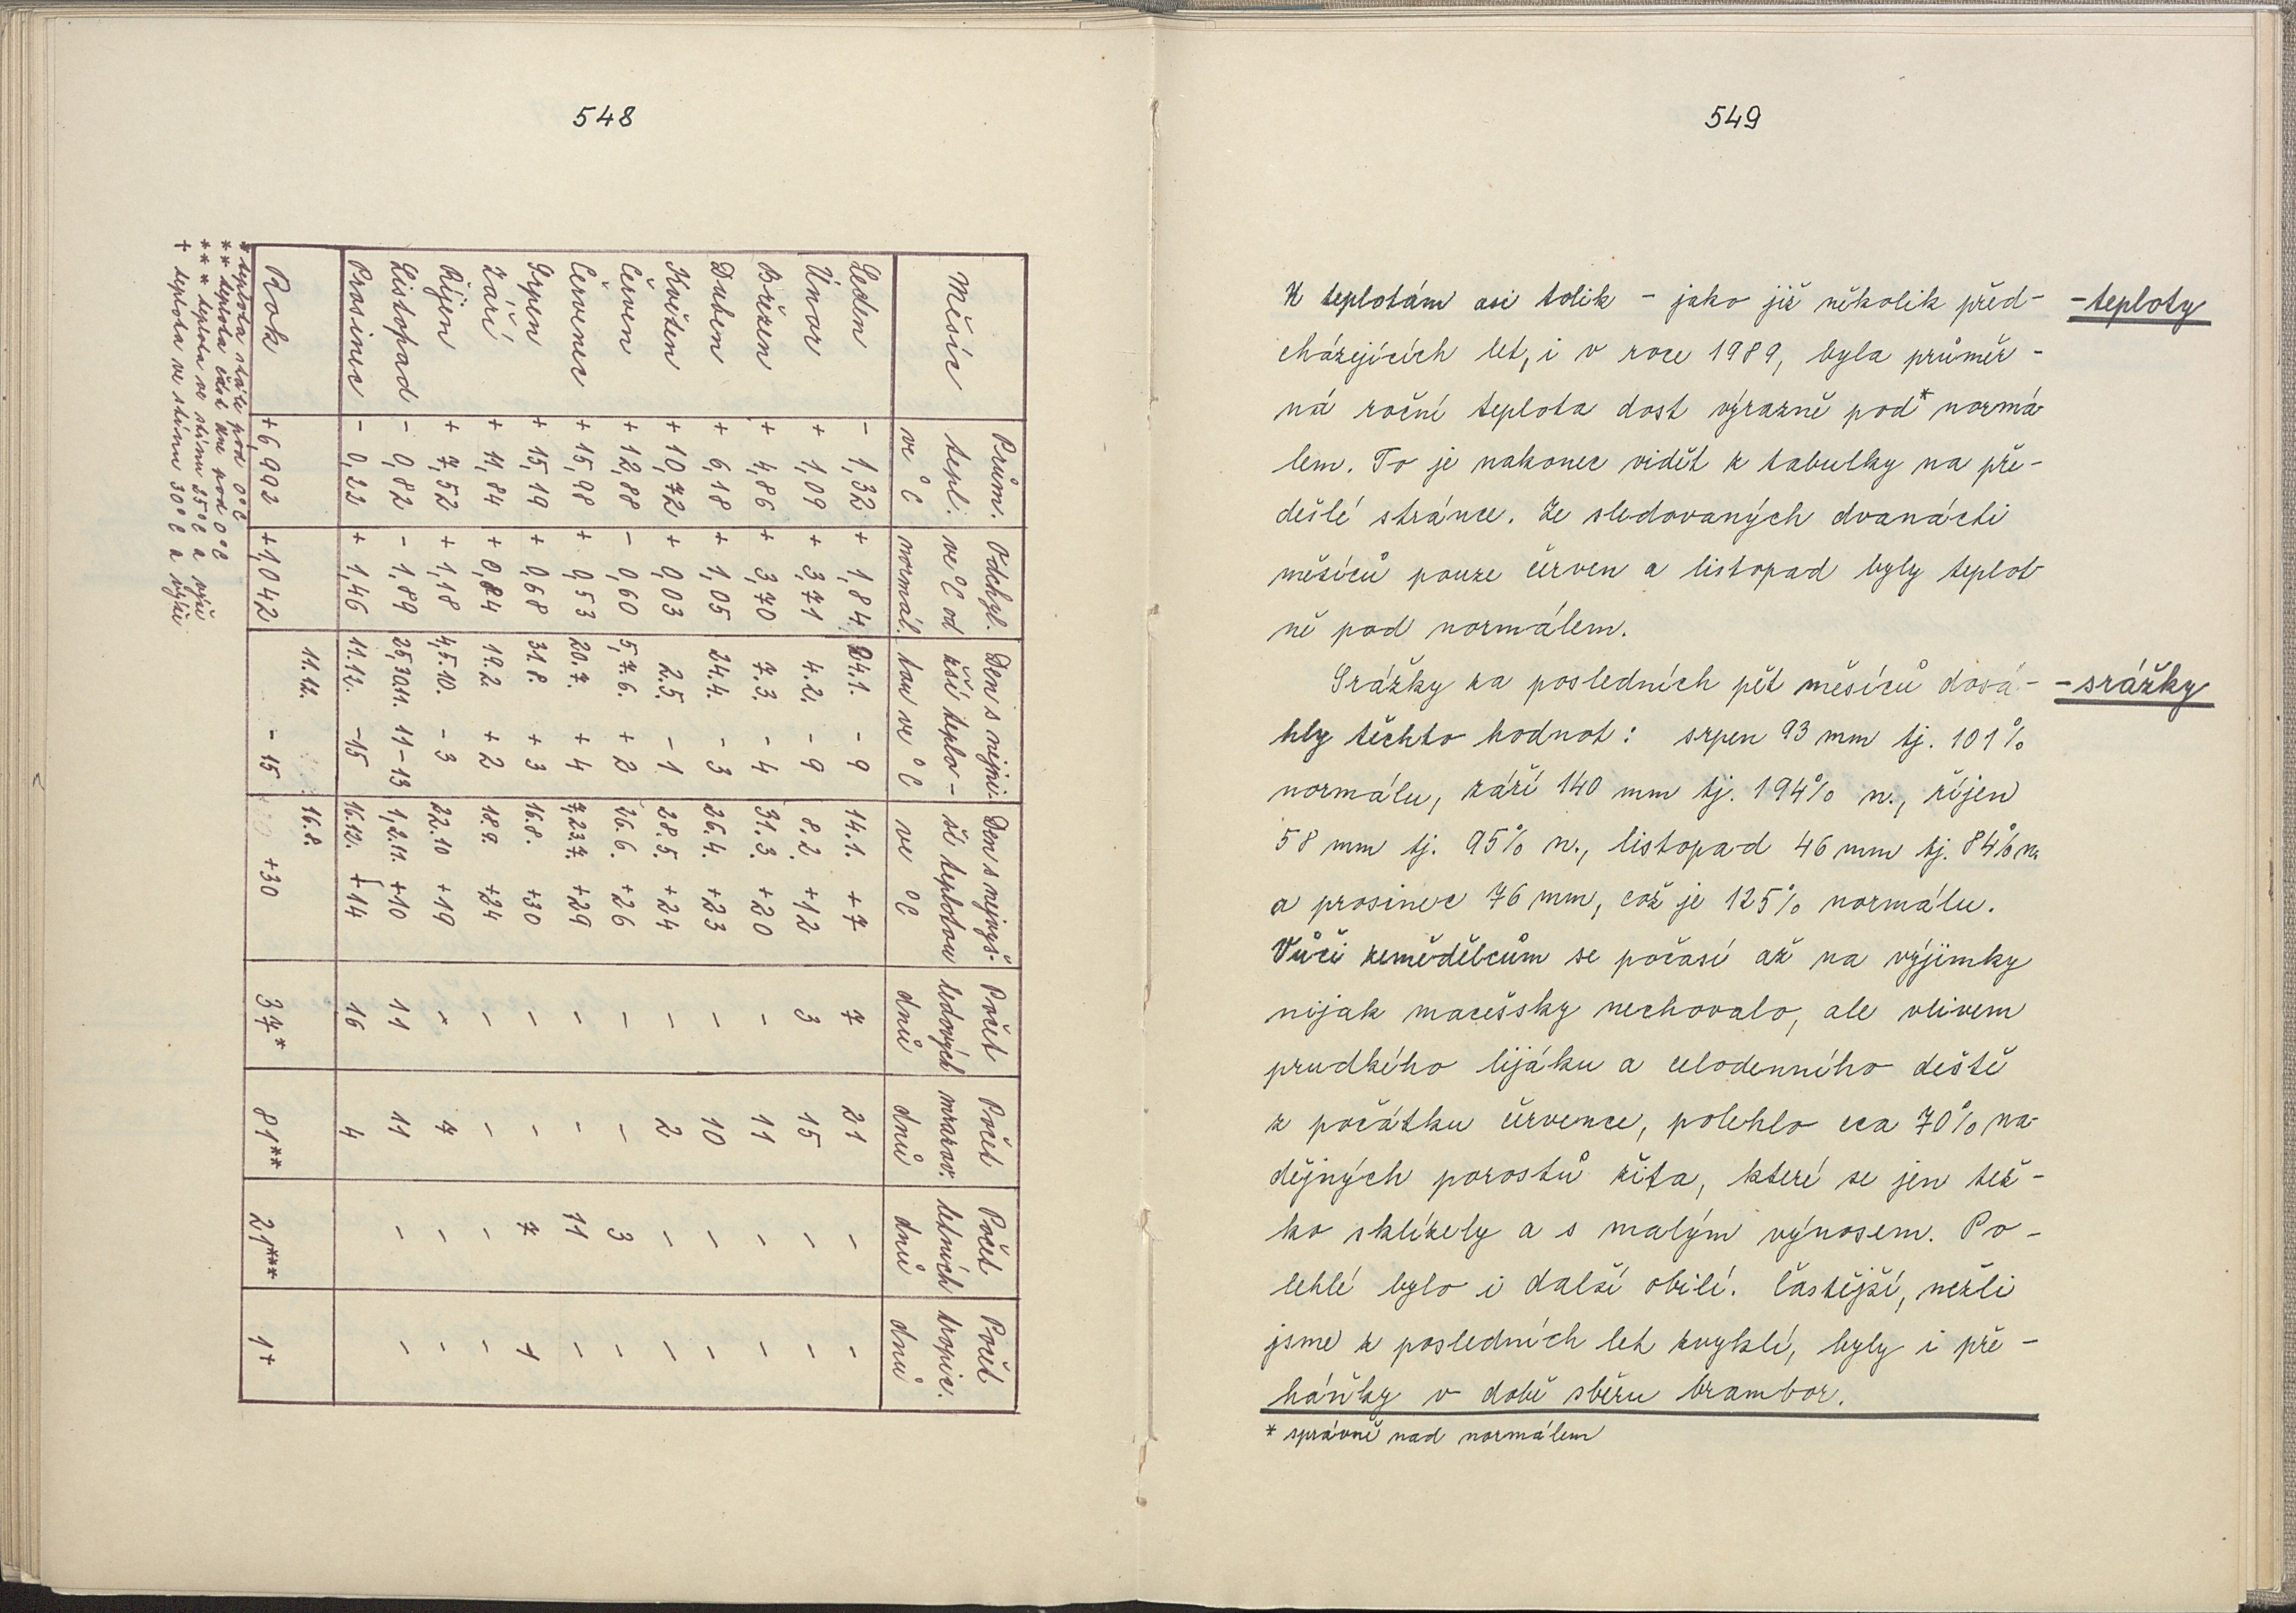 548
Měsíc Prům. tepl. ve °C Odchyl. ve °C od normál. Den s nejniž- ší teplo- tou ve °C Den s nejvyš- ší teplotou ve °C Počet ledových dnů Počet mrazov. dnů Počet letních dnů Počet tropic. dnů
Leden - 1,32 + 1,84 24.1. - 9 14.1. + 7 7 21 - -
Únor + 1,09 + 3,71 4.2. - 9 8.2. + 12 3 15 - -
Březen + 4,86 + 3,70 7.3. - 4 31.3. + 20 - 11 - -
Duben + 6,18 + 1,05 24.4. - 3 26.4. + 23 - 10 - -
Květen + 10,72 + 0,03 2.5. - 1 28.5. + 24 - 2 - -
Červen + 12,88 - 0,60 5,7.6. + 2 26.6. + 26 - - 3 -
Červenec + 15,98 + 0,53 20.7. + 4 7,23.7. + 29 - - 11 -
Srpen + 15,19 + 0,68 31.8. + 3 16.8. +30 - - 7 1
Září + 11,84 + 0,84 19.2. + 2 18.9. +24 - - - -
Říjen + 7,52 + 1,18 4,5.10. - 3 22.10 + 19 - 7 - -
Listopad - 0,82 - 1,89 25,30.11. 11-13 1,2.11. +10 11 11 - -
Prosinec - 0,22 + 1,46 11.12. -15 16.12. + 14 16 4
Rok +6,992 +1,042 11.12. - 15 16.8. +30 37* 81** 21*** 1+
* teplota stále pod 0°C
** teplota část dne pod 0°C
*** teplota ve stínu 25°C a výše
+ teplota ve stínu 30°C a výše
549
K teplotám asi tolik - jako již několik před-
- teploty
cházejících let, i v roce 1989, byla průměr-
ná roční teplota dost výrazně pod* normá-
lem. To je nakonec vidět z tabulky na pře-
dešlé stránce. Ze sledovaných dvanácti
měsíců pouze červen a listopad byly teplot-
ně pod normálem.
Srážky za posledních pět měsíců dosá-
- srážky
hly těchto hodnot: srpen 93 mm tj. 101%
normálu, září 140 mm tj. 194% n., říjen
58 mm tj. 95% n., listopad 46 mm tj. 84% n.
a prosinec 76 mm, což je 125% normálu.
Vůči zemědělcům se počasí až na výjimky
nijak macešsky nechovalo, ale vlivem
prudkého lijáku a celodenního deště
z počátku července, polehlo cca 70% na-
dějných porostů žita, které se jen těž-
ko sklízely a s malým výnosem. Po-
lehlé bylo i další obilí. Častější, nežli
jsme z posledních let zvyklí, byly i pře-
háňky v době sběru brambor.
* správně nad normálem